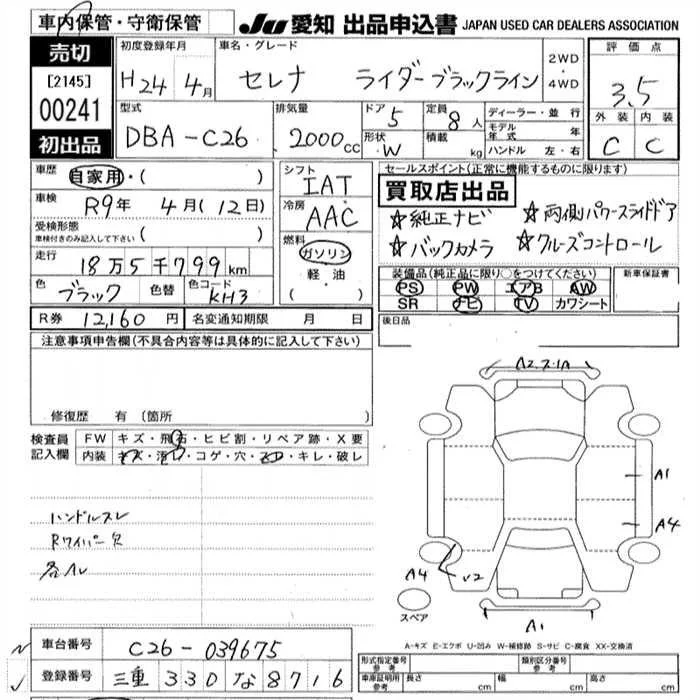 車内保管・守衛保管
JU 愛知 出品申込書 JAPAN USED CAR DEALERS ASSOCIATION
売切
[2145]
00241
初出品
初度登録年月
H24年4月
車名・グレード
セレナ ライダーブラックライン
2WD・4WD
評価点
3.5
外装 内装
C C
型式
DBA-C26
排気量
2000cc
ドア 5
形状 W
定員 8人
積載 kg
ディーラー・並行
モデル年式 年
ハンドル 左・右
車歴 自家用・( )
車検 R9年 4月(12日)
受検形態
車検付きのみ記入して下さい ( )
走行 18万5千799km
色 ブラック 色替 色コード KH3
シフト
IAT
冷房
AAC
燃料
ガソリン
軽油
( )
セールスポイント(正常に機能するものに限ります)
買取店出品
☆純正ナビ ☆両側パワースライドドア
☆バックカメラ ☆クルーズコントロール
装備品(純正品に限り○をつけてください)
PS PW エアB AW
SR ナビ TV カワシート
新車保証書
後日品
R券 12,160円 名変通知期限 月 日
注意事項申告欄(不具合内容等は具体的に記入して下さい)
修復歴 有 (箇所
検査員記入欄
FW キズ・飛石・ヒビ割・リペア跡・X要
内装 キズ・汚れ・コゲ・穴・・キレ・破レ
ハンドルスレ
Rワイパー欠
各ハレ
A2.
A1
A4
A4
U2
A1
スペア
A-キズ E-エクボ U-凹み W-補修跡 S-サビ C-腐食 XX-交換済
車台番号 C26-039675
登録番号 三重 330 な 8716
形式指定番号 参考
類別区分番号 参考
車庫証明用 参考 長さ cm 幅 cm 高さ cm